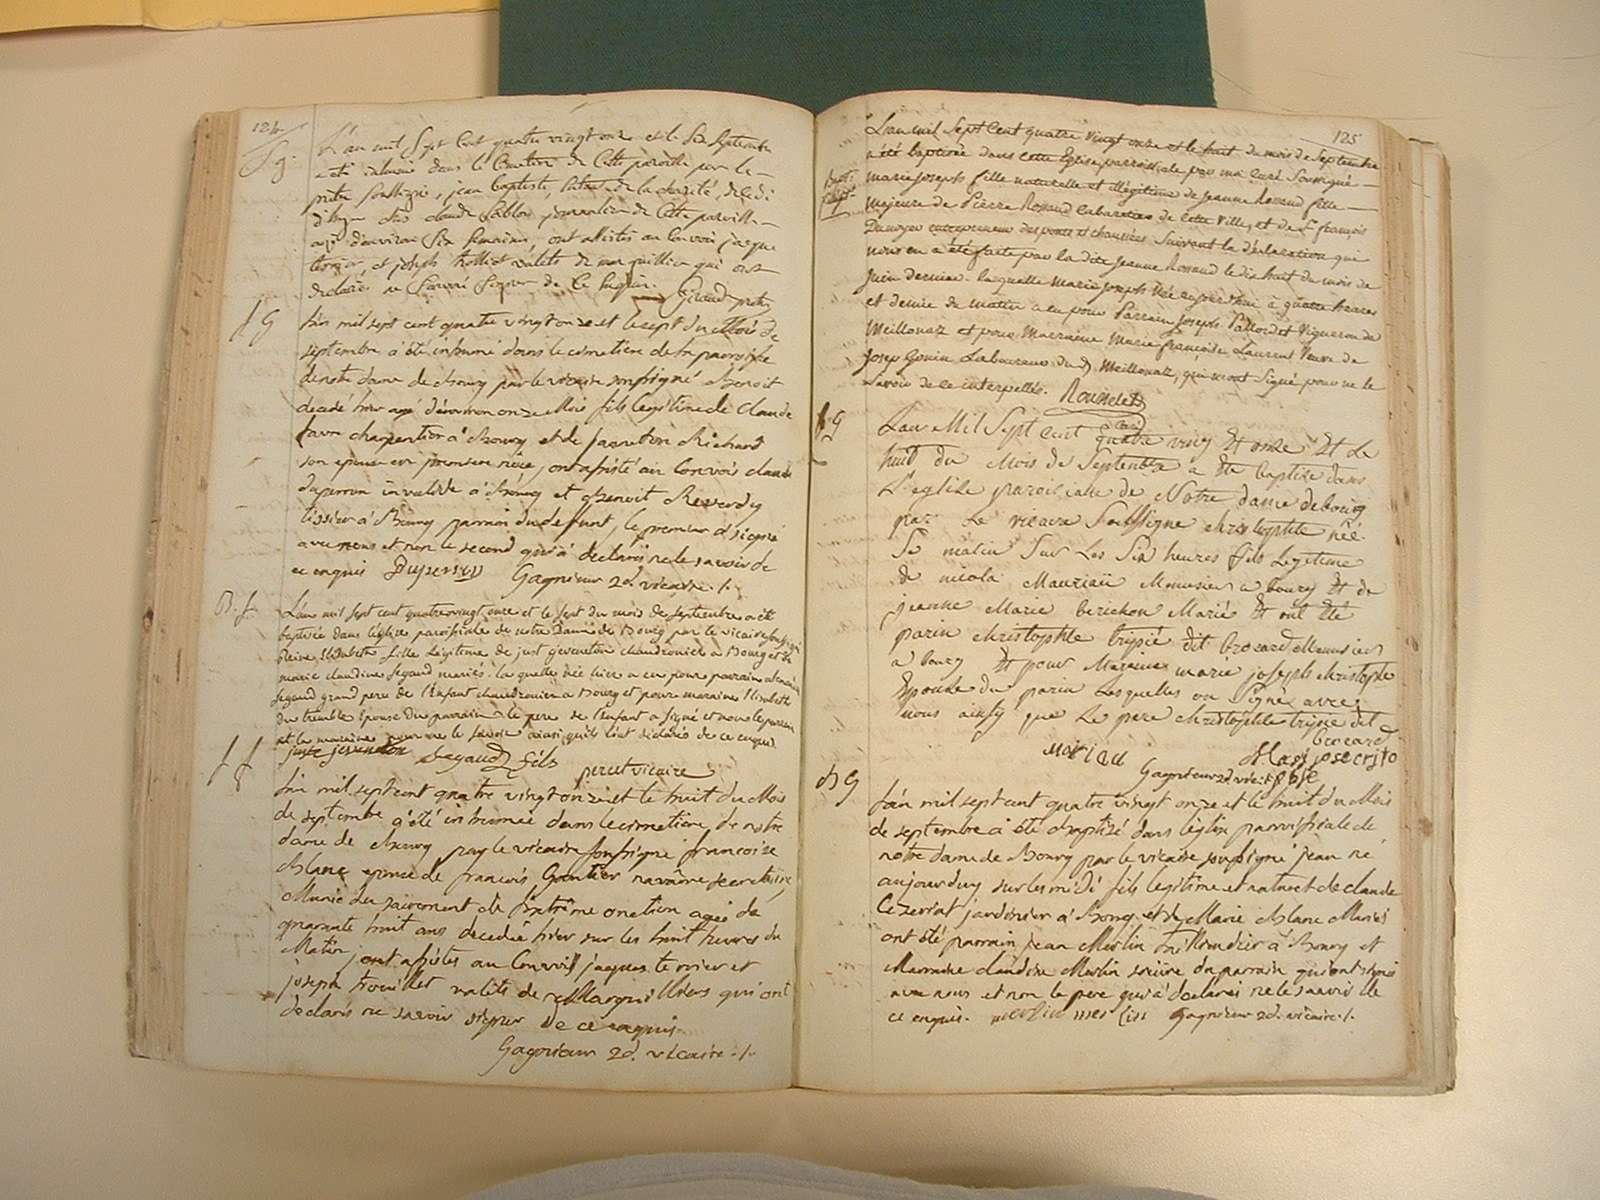 124
S g.
L'an mil Sept Cent quatre vingt onze et le Six Septembre
a eté inhumé dans le Cimetiere de Cette paroisse par le
prêtre soussigné, jean baptiste, de la charité, de
chés claude journalier de Cette paroisse
agé d'environ Six Semaines, ont assistés au Convoi jacque
terrier, et joseph valets de marguillier qui ont
declarés ne Savoir Signer de Ce Requis. Giraud prêtre
S G
L'an mil sept cent quatre vingt onze et le sept du Mois de
septembre à été inhumé dans le cimetiere de la paroisse
de notre dame de Bourg par le vicaire soussigné Benoit
decedé hier agé d'environ onze Mois fils legitime de Claude
favre charpentier à Bourg et de Richard
son epouse en premiere nôce, ont assisté au Convois claude
duperron invalide à Bourg et Benoit Reverdy
tissier à Bourg parrain du defunt, le premier a signé
avec nous et non le second qui à declaré ne le savoir de
ce enquis Duperron Gagneur 2d. vicaire ./.
B. f.
L'an mil sept cent quatrevingt onze et le sept du mois de septembre a été
baptisée dans l'église paroissiale de notre Dame de Bourg par le vicaire soussigné
Elisabeth fille Légitime de just jeveneton chaudronier à Bourg et de
marie claudine Segaud mariés. laquelle née hier a eu pour parrain
Segaud grand pere de l'enfant chaudronier à Bourg et pour maraine Elisabeth
du tremble épouse du parrain le pere de l'enfant a signé et nous le parrain
et la maraine pour ne le savoir ainsi qu'ils l'ont déclarés de ce enquis
juste jeveneton Segaud fils percet vicaire
S f
L'an mil sept cent quatre vingt onze et le huit du Mois
de septembre à été inhumée dans le cimetiere de notre
dame de Bourg par le vicaire soussigné françoise
Blanc epouse de francois Gontier
Munie du sacrement de l'extrême onction agée de
quarante huit ans decedée hier sur les huit heures du
Matin, ont assistés au Convoi jacques terrier et
joseph trouillet valets de Marguilliers qui ont
declarés ne savoir signer de ce enquis
Gagneur 2d. vicaire ./.
125
Bapt.
L'an mil Sept Cent quatre Vingt onze et le huit du mois de Septembre
a été baptisée dans cette Eglise parroissiale par moi Curé Soussigné
Marie joseph fille naturelle et illégitime de Jeanne Renaud fille
majeure de Pierre Renaud Cabaretier de cette Ville, et de Sr. françois
entrepreneur des ponts et chaussées suivant la déclaration qui
nous en a été faite par la dite Jeanne Renaud le dix huit du mois de
Juin dernier. laquelle Marie joseph Née aujourd'hui à quatre heures
et demie du matin a eu pour Parrain Joseph Palloret Vigneron de
Meillonaz et pour Marraine Marie françoise Laurent Veuve de
Josep Gouin Laboureur du d. Meillonaz, qui n'ont Signé pour ne le
Savoir de ce interpellés. Rousselet
B G
L'an Mil Sept cent quatre vingt Et onze Et Le
huit du Mois de Septembre a été baptisé dans
L'eglise paroissialle de Notre dame de bourg
par Le vicaire Soussigné christophle néé
Se matin Sur Les Six heures fils Legitime
de nicola Mauriau Menusier a bourg Et de
jeanne Marie berichon Mariés Et ont été
parin christophle tripié dit brocard Menusier
a bourg Et pour Maraine marie joseph christophe
Epouse du parin Lesquelles on Signé avec
nous ainsy que Le pere christophle tripié dit
brocard
moriau
Gagneur 2d. vic.
B G
L'an mil sept cent quatre vingt onze et le huit du Mois
de septembre à été Baptizé dans l'église parroissiale de
notre dame de Bourg par le vicaire soussigné jean né
aujourduy sur les midi fils legitime et naturel de claude
Cezeriat jardinier à Bourg et de Marie Blanc Mariés
ont été parrain jean Merlin taillandier à Bourg et
Marraine claudine Merlin soeure du parrain qui ont signés
avec nous et non le pere qui à declaré ne le savoir de
ce enquis. merlin Gagneur 2d. vicaire ./.